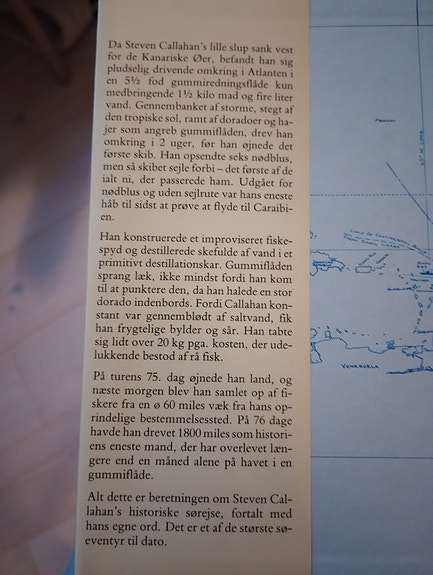 Da Steven Callahan's lille slup sank vest
for de Kanariske Øer, befandt han sig
pludselig drivende omkring i Atlanten i
en 5½ fod gummiredningsflåde kun
medbringende 1½ kilo mad og fire liter
vand. Gennembanket af storme, stegt af
den tropiske sol, ramt af doradoer og ha-
jer som angreb gummiflåden, drev han
omkring i 2 uger, før han øjnede det
første skib. Han opsendte seks nødblus,
men så skibet sejle forbi – det første af de
ialt ni, der passerede ham. Udgået for
nødblus og uden sejlrute var hans eneste
håb til sidst at prøve at flyde til Caraibi-
en.
Han konstruerede et improviseret fiske-
spyd og destillerede skefulde af vand i et
primitivt destillationskar. Gummiflåden
sprang læk, ikke mindst fordi han kom
til at punktere den, da han halede en stor
dorado indenbords. Fordi Callahan kon-
stant var gennemblødt af saltvand, fik
han frygtelige bylder og sår. Han tabte
sig lidt over 20 kg pga. kosten, der ude-
lukkende bestod af rå fisk.
På turens 75. dag øjnede han land, og
næste morgen blev han samlet op af fi-
skere fra en ø 60 miles væk fra hans op-
rindelige bestemmelsessted. På 76 dage
havde han drevet 1800 miles som histori-
ens eneste mand, der har overlevet læn-
gere end en måned alene på havet i en
gummiflåde.
Alt dette er beretningen om Steven Cal-
lahan's historiske sørejse, fortalt med
hans egne ord. Det er et af de største sø-
eventyr til dato.
VENEZUELA